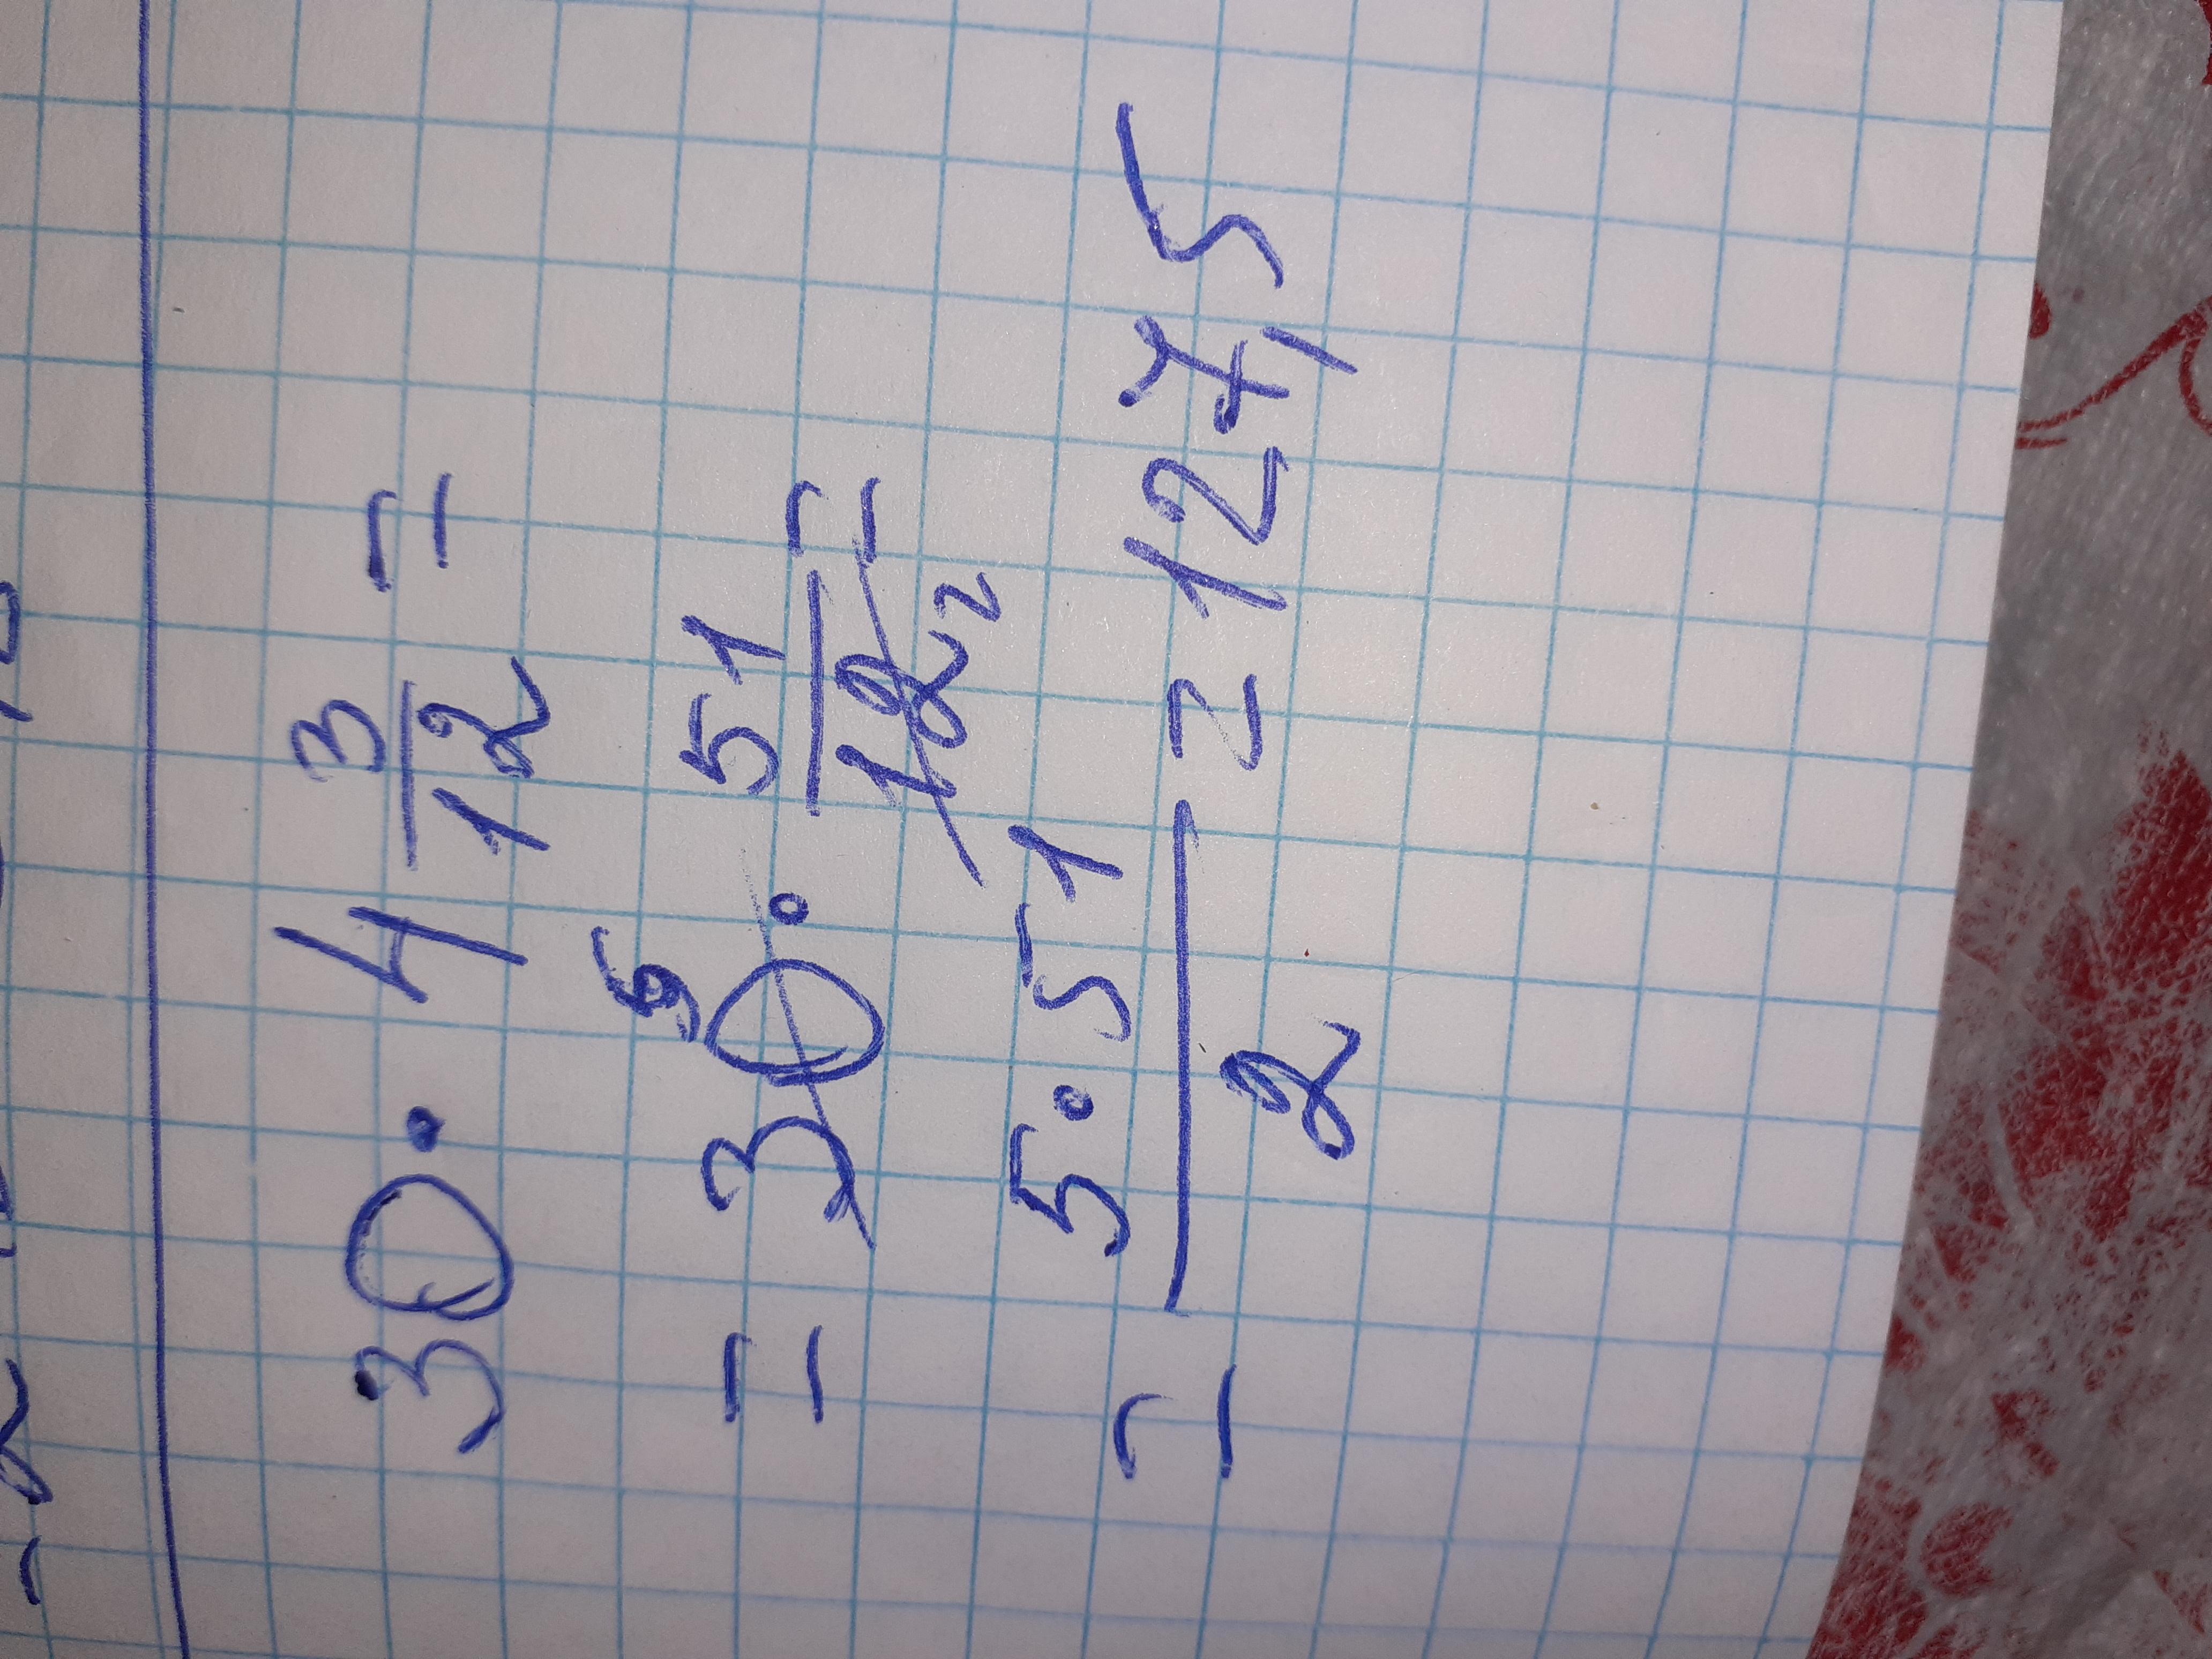 30 · 4 3/12 =
= 30 5 · 51/12 2 =
= 5 · 51/2 = 127,5